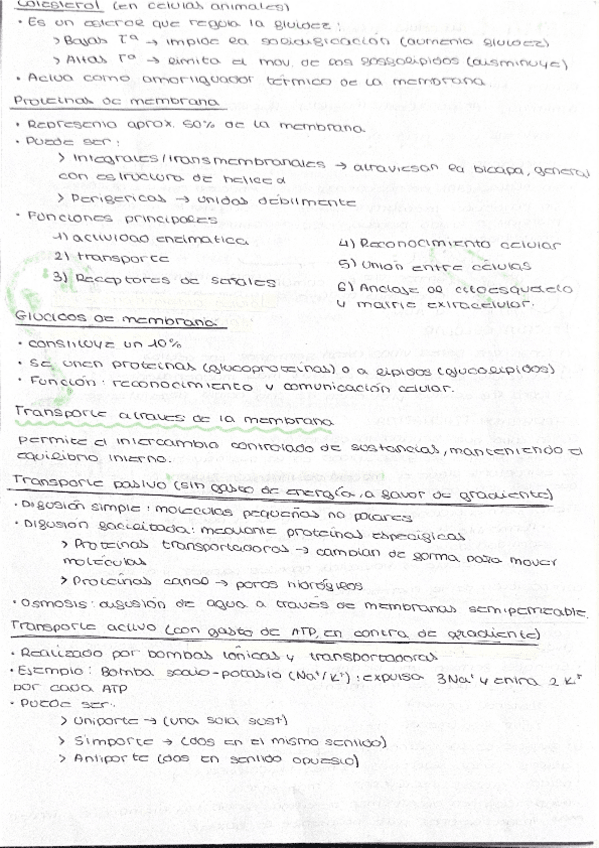 Colesterol (en células animales)
• Es un esterol que regula la fluidez:
> Bajas Tª → impide la solidificación (aumenta fluidez)
> Altas Tª → limita el mov. de los fosfolípidos (disminuye)
• Actúa como amortiguador térmico de la membrana.
Proteínas de membrana
• Representa aprox. 50% de la membrana.
• Puede ser:
> Integrales/transmembranales → atraviesan la bicapa, general
con estructura de hélice α
> Periféricas → unidas débilmente
• Funciones principales
1) actividad enzimática
2) transporte
3) Receptores de señales
4) Reconocimiento celular
5) Unión entre células
6) Anclaje al citoesqueleto
y matriz extracelular.
Glúcidos de membrana
• constituye un 10%
• Se unen proteínas (glucoproteínas) o a lípidos (glucolípidos)
• Función: reconocimiento y comunicación celular.
Transporte a través de la membrana
Permite el intercambio controlado de sustancias, manteniendo el
equilibrio interno.
Transporte pasivo (sin gasto de energía, a favor de gradiente)
• Difusión simple: moléculas pequeñas no polares
• Difusión facilitada: mediante proteínas específicas
> Proteínas transportadoras → cambian de forma para mover
moléculas
> Proteínas canal → poros hidrófilos
• Osmosis: difusión de agua a través de membranas semipermeable.
Transporte activo (con gasto de ATP, en contra de gradiente)
• Realizado por bombas iónicas y transportadoras
• Ejemplo: Bomba sodio-potasio (Na⁺/K⁺): expulsa 3Na⁺ y entra 2 K⁺
por cada ATP
• Puede ser:
> Uniporte → (una sola sust)
> Simporte → (dos en el mismo sentido)
> Antiporte (dos en sentido opuesto)